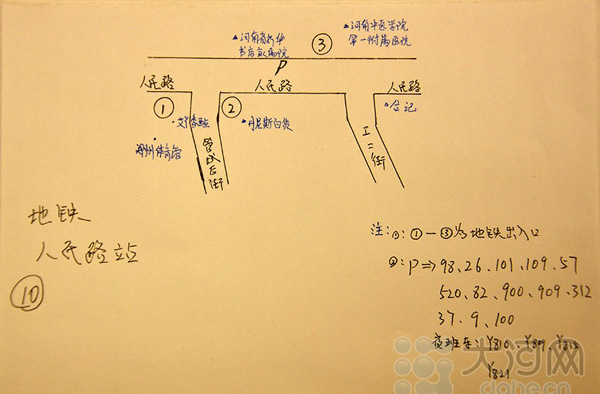 河南省新华
书店
③
河南中医学院
第一附属医院
P
人民路
人民路
人民路
①
②
丹尼斯百货
合记
郑州体育馆
管城后街
工二街
地铁
人民路站
⑩
注:①:①一③为地铁出入口
②:P⇒98、26、101、109、57
520、82、900、909、312
37、9、100
夜班车:Y810、Y809、
Y821
大河网
dahe.cn